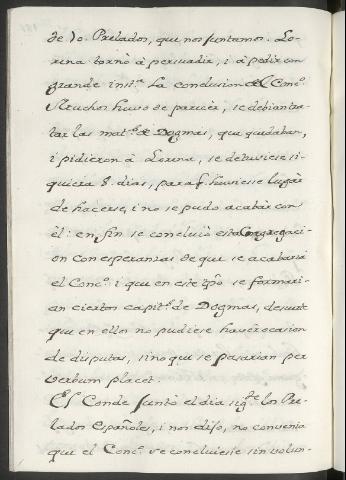 de 70 Prelados, que nos juntamos. Lo-
rena tornò à persuadir, i à pedir con
grande inst.ª la conclusion del Conc.º
Muchos huvo de parecer, se debian tra-
tar las mat.s de Dogmas, que quedaban,
i pidieron à Lorena, se detuviese si-
quiera 8. dias, para q. huviese lugàr
de hacerse, i no se pudo acabàr con
èl: en fin se concluiò esta Congregaci-
on con esperanzas de que se acabaria
el Conc.º i que en este tpo se formari-
an ciertos capit.s de Dogmas, desuerte
que en ellos no pudiese havèr ocasion
de disputas, sino que se pasarian per
verbum placet.
El Conde juntò el dia sig.te los Pre-
lados Españoles, i nos dijo, no convenia
que el Conc.º se concluiese sin volun-